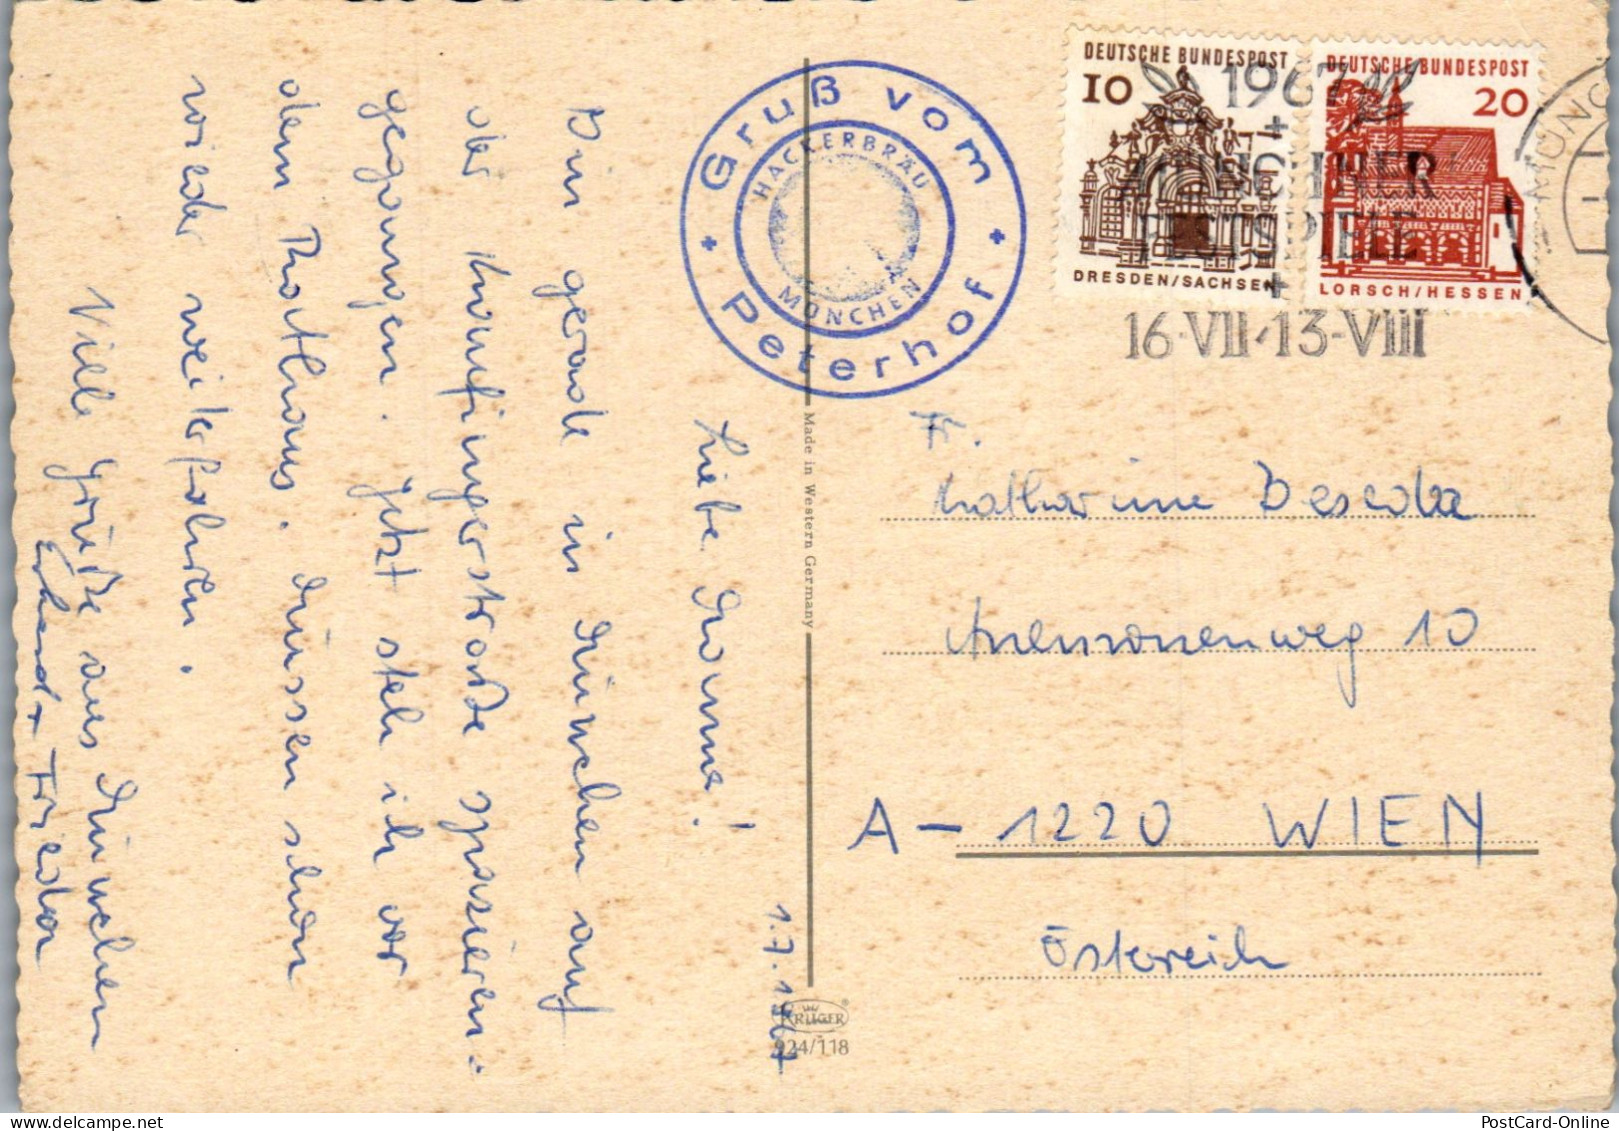 1.7.1967
Liebe Mama!
Bin gerade in München auf
der Kaufingerstraße spazieren-
gegangen. Jetzt steh ich vor
dem Rathaus. Müssen schon
wieder weiterfahren.
Viele Grüße aus München
Erhard + Frieda
Gruß vom
+ Peterhof +
HACKERBRÄU
MÜNCHEN
Made in Western Germany
KRÜGER
924/118
DEUTSCHE BUNDESPOST
10
DRESDEN/SACHSEN
DEUTSCHE BUNDESPOST
20
LORSCH/HESSEN
1967
MÜNCHNER
FESTSPIELE
16·VII-13-VIII
MÜNC
Fr.
Katharina Beseda
Anemonenweg 10
A - 1220 WIEN
Österreich
PostCard-Online